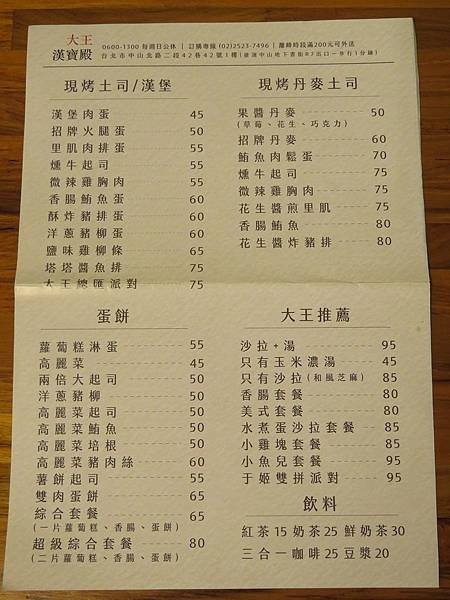 大王
漢寶殿
0600-1300 每週日公休 | 訂購專線 (02)2523-7496 | 離峰時段滿200元可外送
台北市中山北路二段42巷42號1樓(捷運中山地下書街R7出口一步行1分鐘)
現烤土司/漢堡
漢堡肉蛋 45
招牌火腿蛋 50
里肌肉排蛋 55
燻牛起司 55
微辣雞胸肉 55
香腸鮪魚蛋 60
酥炸豬排蛋 60
洋蔥豬柳蛋 60
鹽味雞柳條 65
塔塔醬魚排 75
大王總匯派對 75
現烤丹麥土司
果醬丹麥 50
(草莓、花生、巧克力)
招牌丹麥 60
鮪魚肉鬆蛋 70
燻牛起司 75
微辣雞胸肉 75
花生醬煎里肌 75
香腸鮪魚 80
花生醬炸豬排 80
蛋餅
蘿蔔糕淋蛋 55
高麗菜 45
兩倍大起司 50
洋蔥豬柳 50
高麗菜起司 50
高麗菜鮪魚 50
高麗菜培根 50
高麗菜豬肉絲 60
薯餅起司 55
雙肉蛋餅 65
綜合套餐 65
(一片蘿蔔糕、香腸、蛋餅)
超級綜合套餐 80
(二片蘿蔔糕、香腸、蛋餅)
大王推薦
沙拉+湯 95
只有玉米濃湯 45
只有沙拉(和風芝麻) 85
香腸套餐 80
美式套餐 80
水煮蛋沙拉套餐 85
小雞塊套餐 85
小魚兒套餐 95
于姬雙拼派對 95
飲料
紅茶15 奶茶25 鮮奶茶30
三合一咖啡25 豆漿20